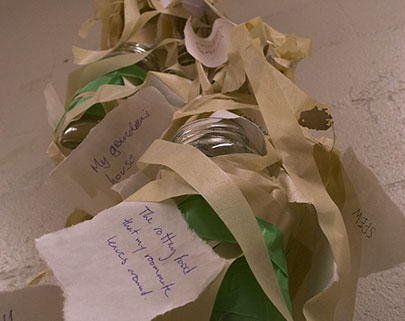 My grandma's
house
The rotting food
that my roommate
leaves around
MEDS